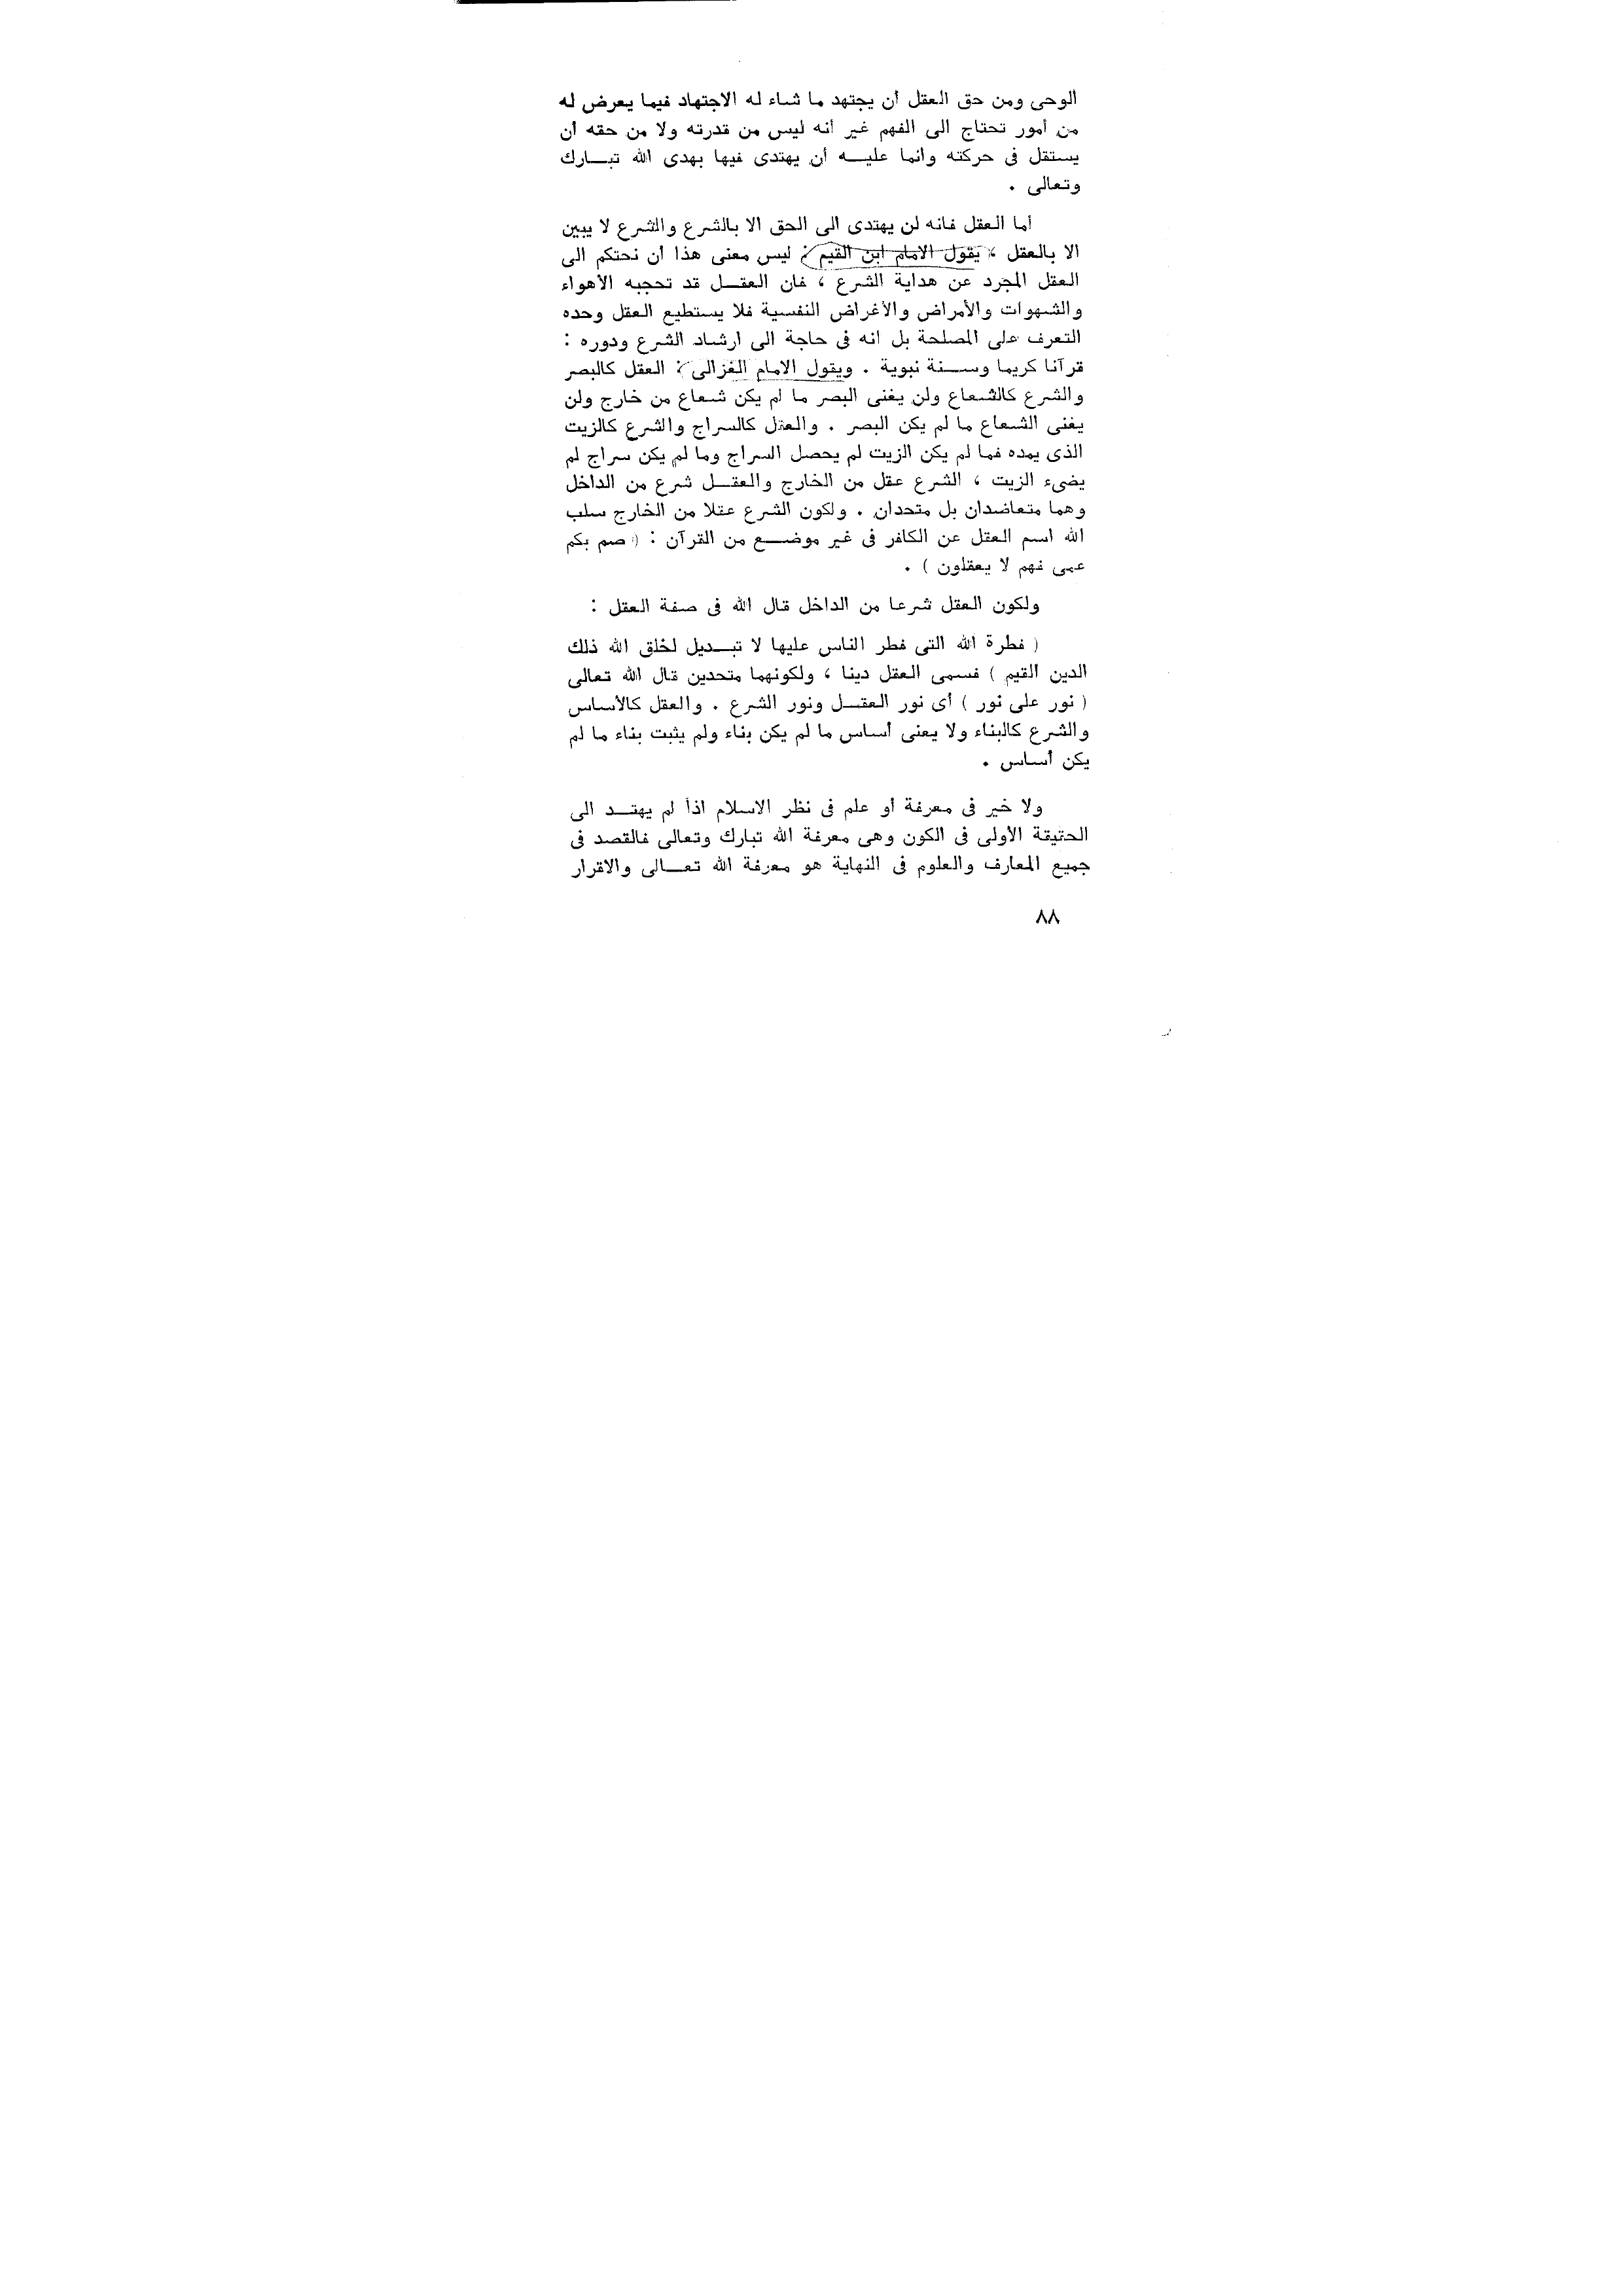 الوحى ومن حق العقل أن يجتهد ما شاء له الاجتهاد فيما يعرض له
من أمور تحتاج الى الفهم غير أنه ليس من قدرته ولا من حقه أن
يستقل فى حركته وانما عليـــه أن يهتدى فيها بهدى الله تبـــارك
وتعالى .
أما العقل فانه لن يهتدى الى الحق الا بالشرع والشرع لا يبين
الا بالعقل ، يقول الامام ابن القيم : ليس معنى هذا أن نحتكم الى
العقل المجرد عن هداية الشرع ، فان العقـــل قد تحجبه الأهواء
والشهوات والأمراض والأغراض النفسية فلا يستطيع العقل وحده
التعرف على المصلحة بل انه فى حاجة الى ارشاد الشرع ودوره :
قرآنا كريما وســـنة نبوية . ويقول الامام الغزالى : العقل كالبصر
والشرع كالشعاع ولن يغنى البصر ما لم يكن شعاع من خارج ولن
يغنى الشعاع ما لم يكن البصر . والعقل كالسراج والشرع كالزيت
الذى يمده فما لم يكن الزيت لم يحصل السراج وما لم يكن سراج لم
يضىء الزيت ، الشرع عقل من الخارج والعقـــل شرع من الداخل
وهما متعاضدان بل متحدان . ولكون الشرع عقلا من الخارج سلب
الله اسم العقل عن الكافر فى غير موضـــع من القرآن : ( صم بكم
عمى فهم لا يعقلون ) .
ولكون العقل شرعا من الداخل قال الله فى صفة العقل :
( فطرة الله التى فطر الناس عليها لا تبـــديل لخلق الله ذلك
الدين القيم ) فسمى العقل دينا ، ولكونهما متحدين قال الله تعالى
( نور على نور ) أى نور العقـــل ونور الشرع . والعقل كالأساس
والشرع كالبناء ولا يعنى أساس ما لم يكن بناء ولم يثبت بناء ما لم
يكن أساس .
ولا خير فى معرفة أو علم فى نظر الاسلام اذا لم يهتـــد الى
الحقيقة الأولى فى الكون وهى معرفة الله تبارك وتعالى فالقصد فى
جميع المعارف والعلوم فى النهاية هو معرفة الله تعـــالى والاقرار
٨٨